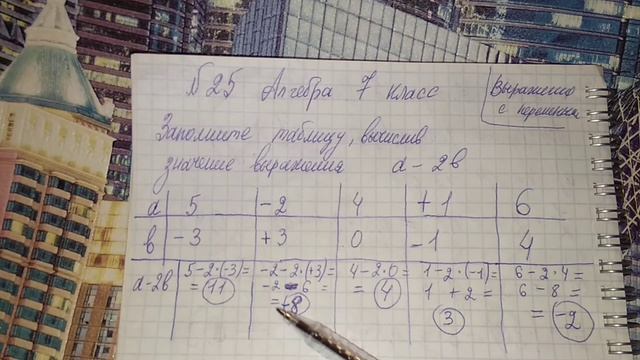 №25 Алгебра 7 класс
Выражение
с переменной
Заполните таблицу, вычислив
значение выражения a - 2b
a 5 -2 4 +1 6
b -3 +3 0 -1 4
a-2b 5-2·(-3)= -2-2·(+3)= 4-2·0= 1-2·(-1)= 6-2·4=
= 11 -2-6= = 4 1+2= 6-8=
= -8 3 = -2